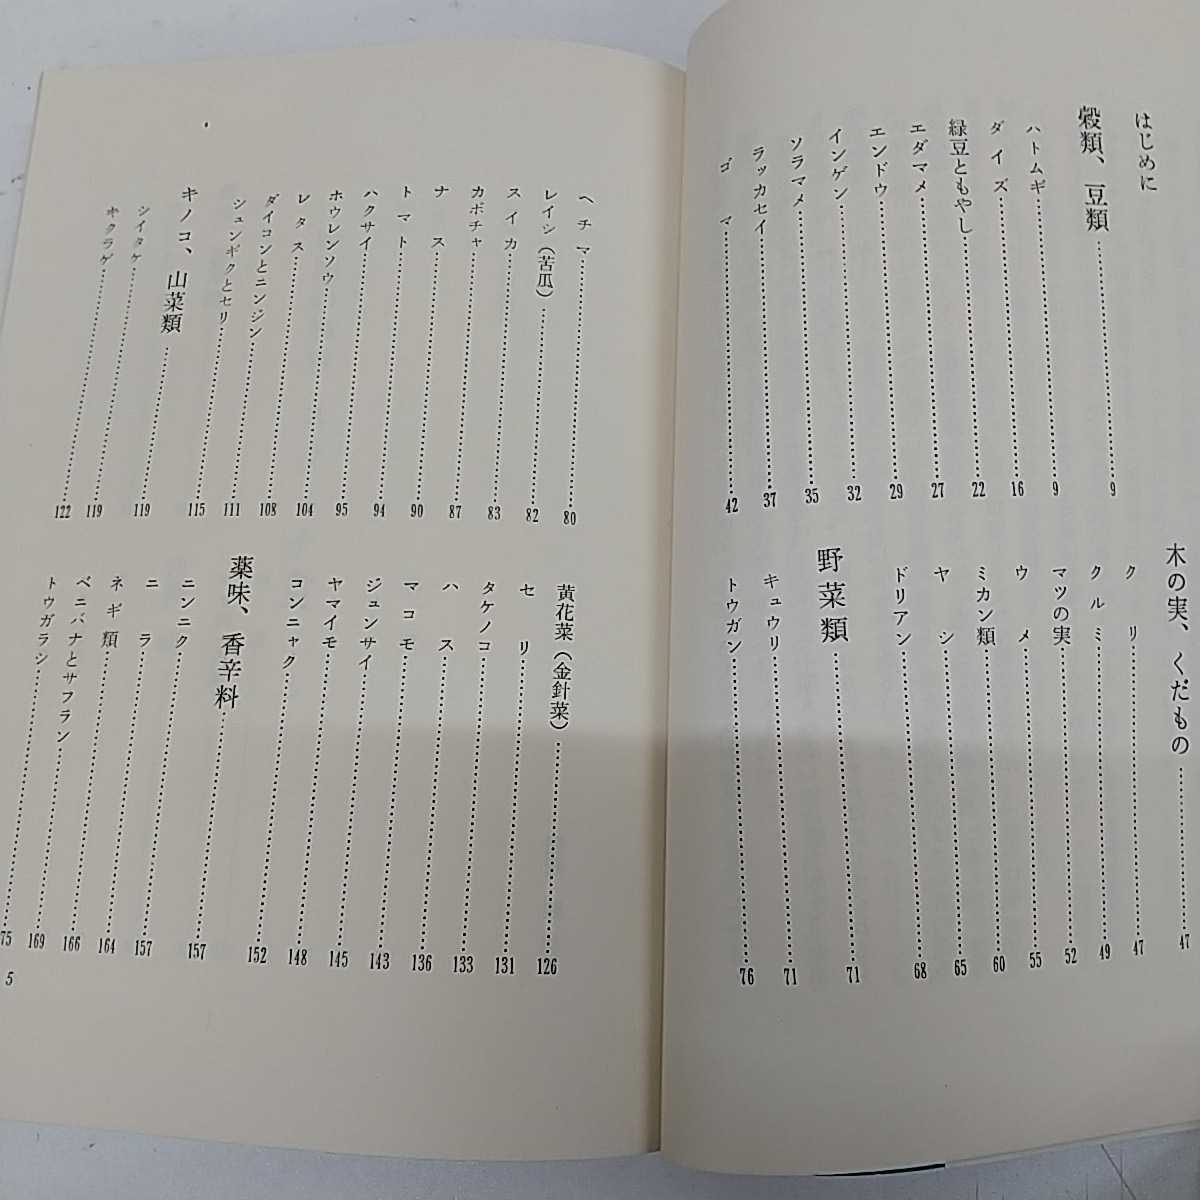 はじめに
穀類、豆類……9
ハトムギ……9
ダイズ……16
緑豆ともやし……22
エダマメ……27
エンドウ……29
インゲン……32
ソラマメ……35
ラッカセイ……37
ゴマ……42
木の実、くだもの……47
クリ……47
クルミ……49
マツの実……52
ウメ……55
ミカン類……60
ヤシ……65
ドリアン……68
野菜類……71
キュウリ……71
トウガン……76
ヘチマ……80
レイシ（苦瓜）……82
スイカ……83
カボチャ……87
ナス……90
トマト……94
ハクサイ……95
ホウレンソウ……104
レタス……108
ダイコンとニンジン……111
シュンギクとセリ……115
キノコ、山菜類……119
シイタケ……119
キクラゲ……122
黄花菜（金針菜）……126
セリ……131
タケノコ……133
ハス……136
マコモ……143
ジュンサイ……145
ヤマイモ……148
コンニャク……152
薬味、香辛料……157
ニンニク……157
ニラ……164
ネギ類……166
ベニバナとサフラン……169
トウガラシ……75
5